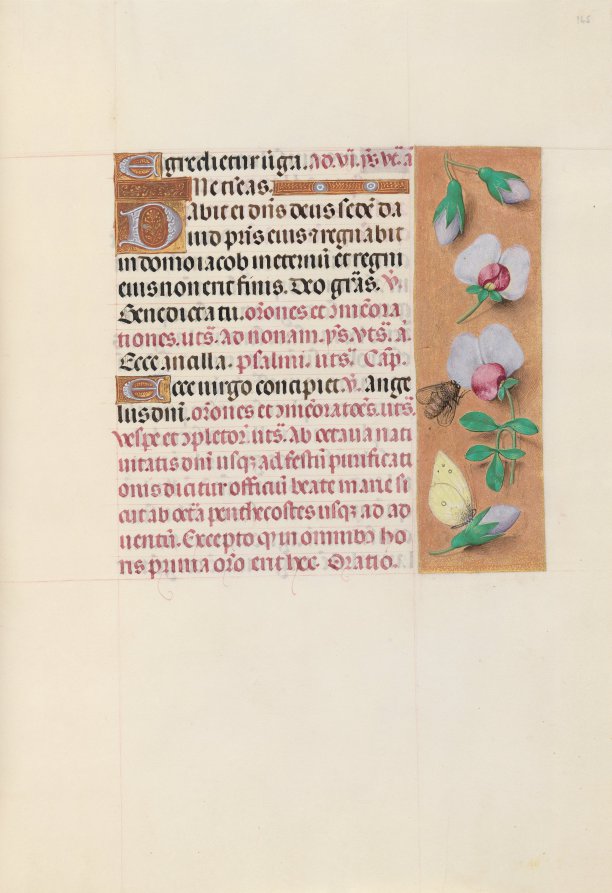 145
Egredietur uirga. ad. vi. ps. ve. a
Ne tieas.
Dabit ei dñs deus sedē da
uid pris eius ⁊ regnabit
in domo iacob in eternū et regni
eius non erit finis. Deo grãs. V.
Benedicta tu. orōnes et ɔmēora
tiones. uts. Ad nonam. ps. vts. ã.
Ecce ancilla. psalmi. uts. Cap.
Ecce uirgo concipiet. V. Ange
lus dnī. orōnes et ɔmēoratoēs. uts.
Vespe et ɔpletor. uts. Ab octaua nati
uitatis dnī usqꝫ ad festū purificati
onis dicitur officiū beate marie si
cut ab octa penthecostes usqꝫ ad ad
uentū. Excepto qꝫ in omnibꝫ ho
ris priuia orō erit hec. Oratio.